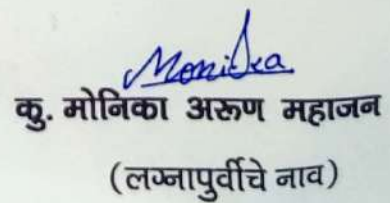 Monika
कु. मोनिका अरूण महाजन
(लग्नापुर्वीचे नाव)